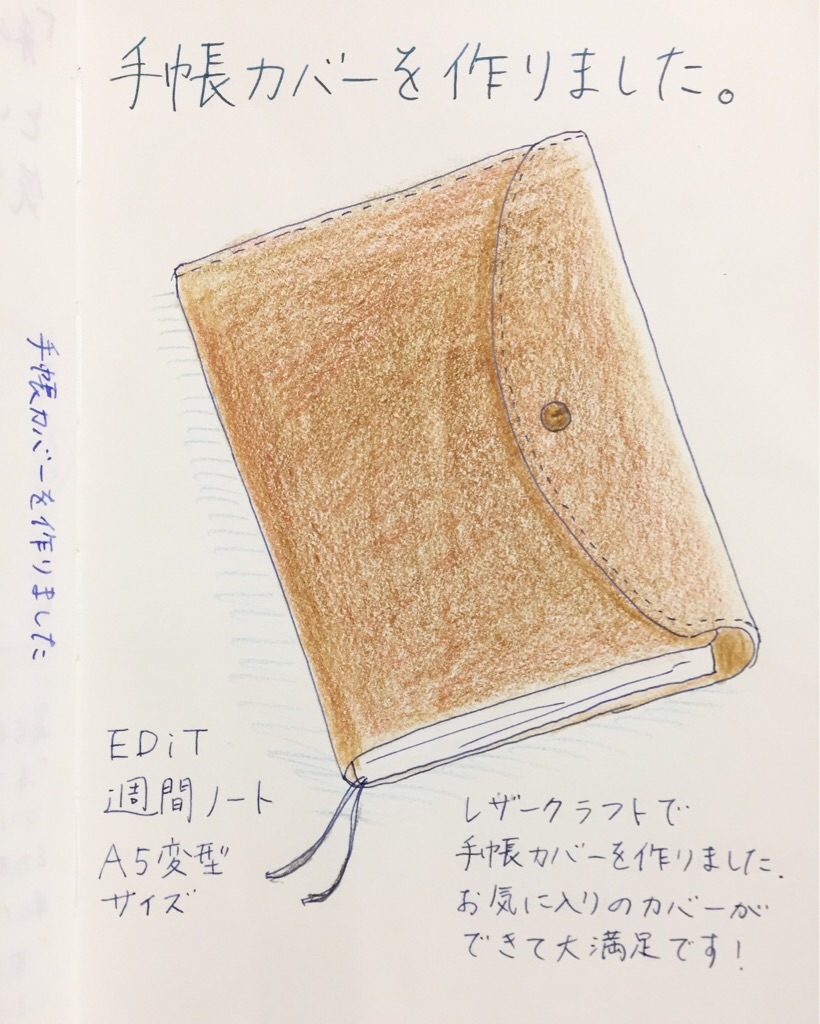 手帳カバーを作りました。
手帳カバーを作りました
EDiT
週間ノート
A5変型
サイズ
レザークラフトで
手帳カバーを作りました.
お気に入りのカバーが
できて大満足です!